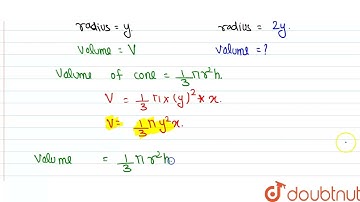 radius = y. radius = 2y.
Volume = V Volume = ?
Volume of cone = 1/3 πr²h
V = 1/3 π × (y)² * x.
V = 1/3 π y² x.
Volume = 1/3 π r² h
doubtnut